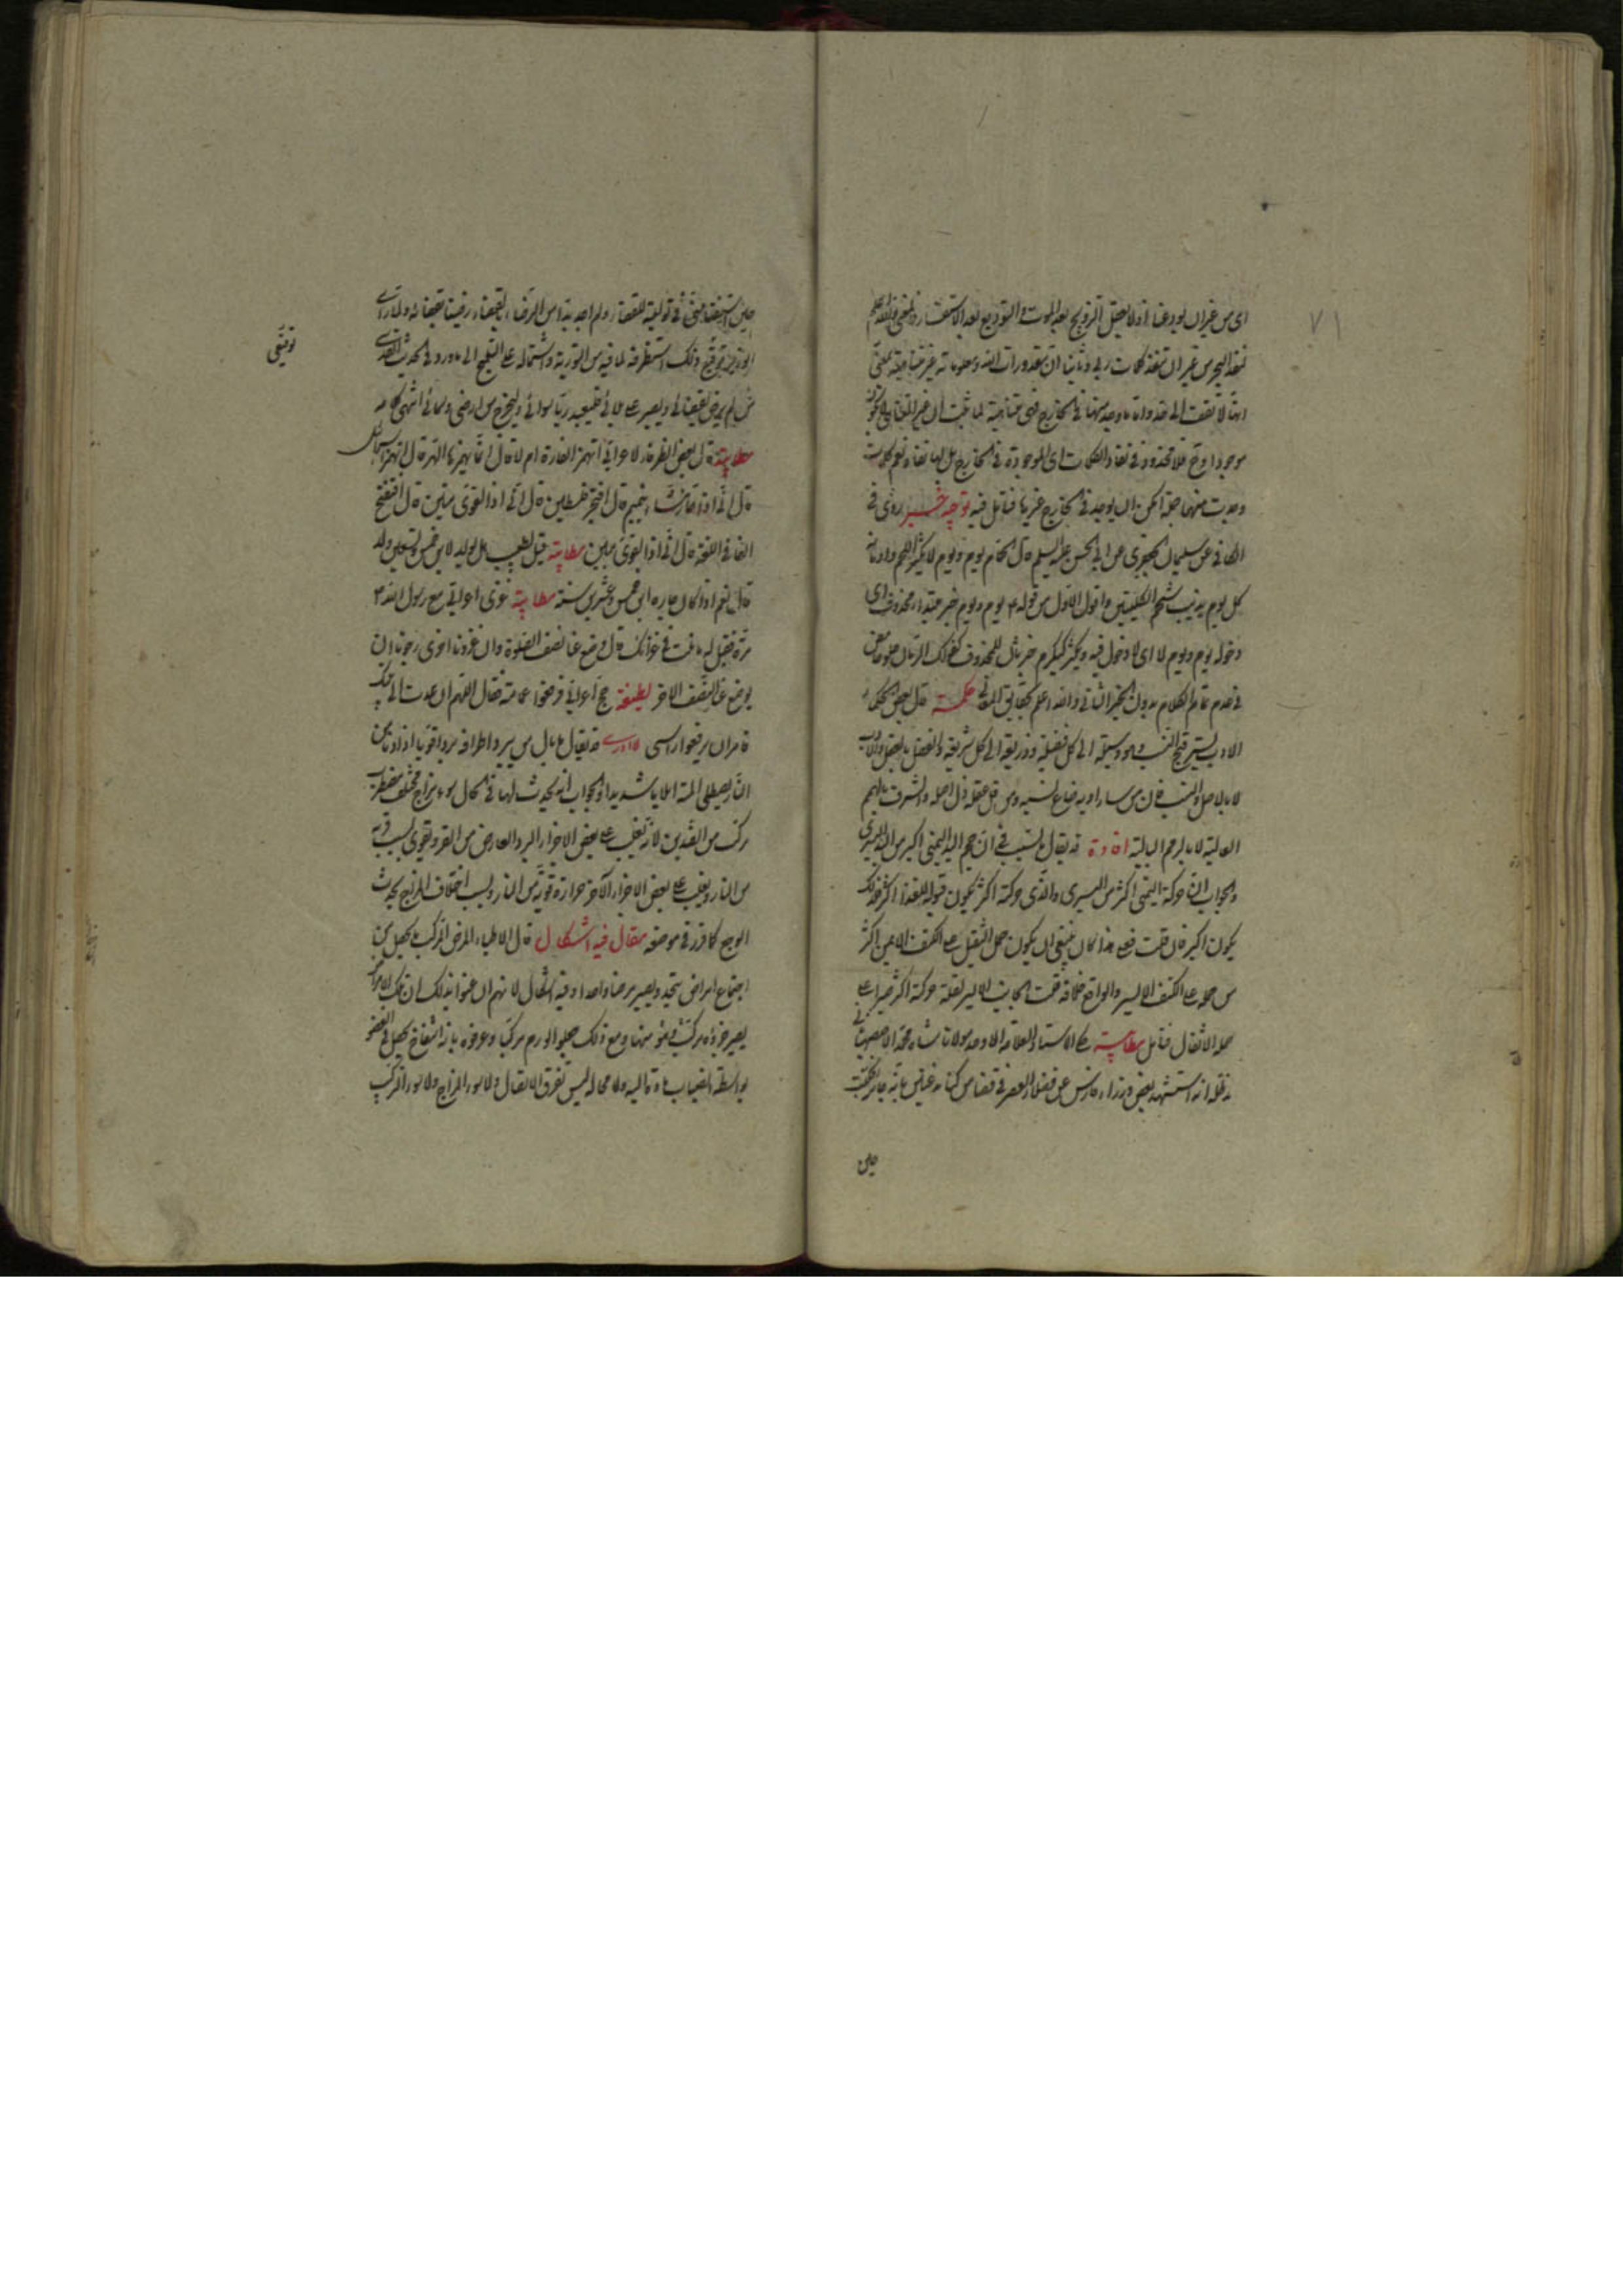 ٧١
اى من غير ان يودعنا اذ لا يعقل التزويج بعد الموت والتوديع بعد
نفد البحر من غير ان تنفد كلمات ربى وثانيا ان مقدورات الله ومعلوماته غير متناهية بمعنى
انها لا تقف الى حد واما ما وجد منها فى الخارج فهى متناهية لما ثبت ان غير المتناهى لا يكون
موجودا وح فلا محذور فى نفاد الكلمات اى الموجودة فى الخارج بل لها نفاد نعم كلما
وجدت منها جملة امكن ان يوجد فى الخارج غيرها فتامل فيه توجيه خبر روى فى
الكافى عن سليمان الجعفرى عن ابى الحسن عليه السلم قال الحمام يوم ويوم لا يكثر اللحم وادمانه
كل يوم يذيب شحم الكليتين واقول الاول من قوله ع يوم ويوم خبر مبتداء محذوف اى
دخوله يوم ويوم لا اى لا دخول فيه ويكثر كيكرم خبر ثان للمحذوف كقولك الرمان حلو حامض
فى عدم تمام الكلام بدون الخبر الثانى والله اعلم بحقايق المعانى حكمة قال بعض الحكماء
الادب يستر قبح النسب وهو وسيلة الى كل فضيلة وذريعة الى كل شريعة والفضل بالعقل والادب
لا بالاصل والنسب فان من ساء ادبه ضاع نسبه ومن قل عقله ذل اصله والشرف بالهمم
العالية لا بالرمم البالية افادة قد يقال ما السبب فى ان حجم اليد اليمنى اكبر من اليد اليسرى
والجواب ان حركة اليمنى اكثر من اليسرى والذى حركته اكثر يكون قبوله للغذاء اكثر فلذلك
يكون اكبر فان قلت فعلى هذا كان ينبغى ان يكون حمل الثقيل على الكتف الايمن اكثر
من حمله على الكتف الايسر والواقع خلافه قلت الجانب الايسر لقلة حركته اكثر صبرا على
حمل الاثقال فتامل مطايبة حكى الاستاد العلامة الاوحد مولانا شاه محمد الاصفهانى
مد ظله انه استشهد بعض وزراء فارس عن فضلاء العصر فى قضاء من كنا نه غبا
حين
حين استقضاء منى فى تولية للقضاء ولم اجد بدا من الرضاء بالقضاء رضينا بقضائه ولما راى
الوزير توقيعى ذلك استظرفه لما فيه من التورية واشتماله على التلميح الى ما ورد فى الحديث القدسى
توقيعى
من لم يرض بقضائى ولم يصبر على بلائى فليعبد ربا سوائى وليخرج من ارضى وسمائى انتهى كلامه
مطايبة قال بعض الظرفاء لاعرابى اتهمز الفارة ام لا قال انما يهمزها الهرة قال اتهمز اسرائيل
قال انى اذا لرجل سوء قال افتجر فلسطين قال انى اذا لقوى متين قال افتفتح
الفا فى اللغة قال انى اذا لقوى مبين مطايبة قيل لطبيب هل يولد لابن خمس وتسعين ولد
قال نعم اذا كان جاره ابن خمس وعشرين سنة مطايبة غزى اعرابى مع رسول الله ص
مرة فقيل له ما نلت فى غزاتك قال وضع عنا نصف الصلوة وان غزونا اخرى رجونا ان
يوضع عنا النصف الاخر لطيفة حج اعرابى فرفعوا عمامته فقال اللهم ان عدت الى بيتك
فامر ان يرفعوا راسى فايدة قد يقال ما بال من يبرد اطرافه بردا قويا اذا دنا من
النار يصطلى المته ايلاما شديدا والجواب انه يحدث لها فى الحال سوء مزاج مختلف مضطرب
مركب من الضدين لانه يغلب على بعض الاجزاء البرد العارض من القر ويقوى بسبب قربه
من النار ويغلب على بعض الاجزاء الاخر حرارة قوية من النار وبسبب اختلاف المزاج يحدث
الوجع كما قرر فى موضعه مقال فيه اشكال قال الاطباء المرض المركب ما يحصل من
اجتماع امراض يتحد ويصير مرضا واحدا وفيه اشكال لانهم ان عنوا بذلك ان تلك الامراض
يصير جزءه مركب فى نحو منها ومع ذلك جعلوا الورم مركبا وعرفوه بانه انتفاخ يحصل فى العضو
بواسطة انصباب مادة اليه ولا محالة ليس تفرق الاتصال ولا سوء المزاج ولا سوء التركيب